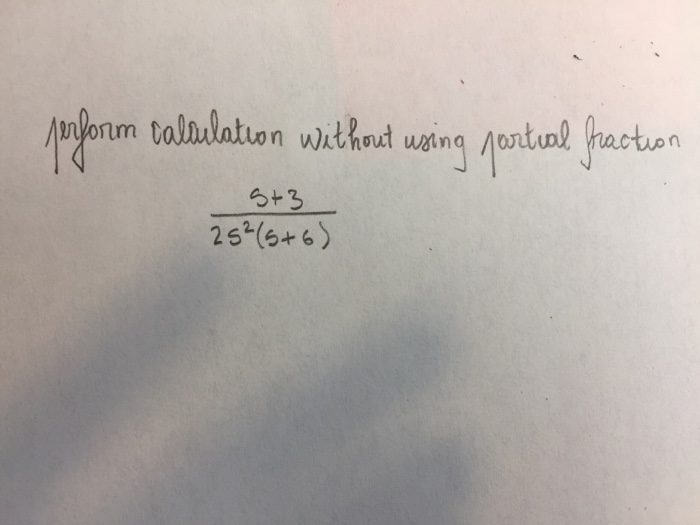 perform calculation without using partial fraction
s+3
2s²(s+6)